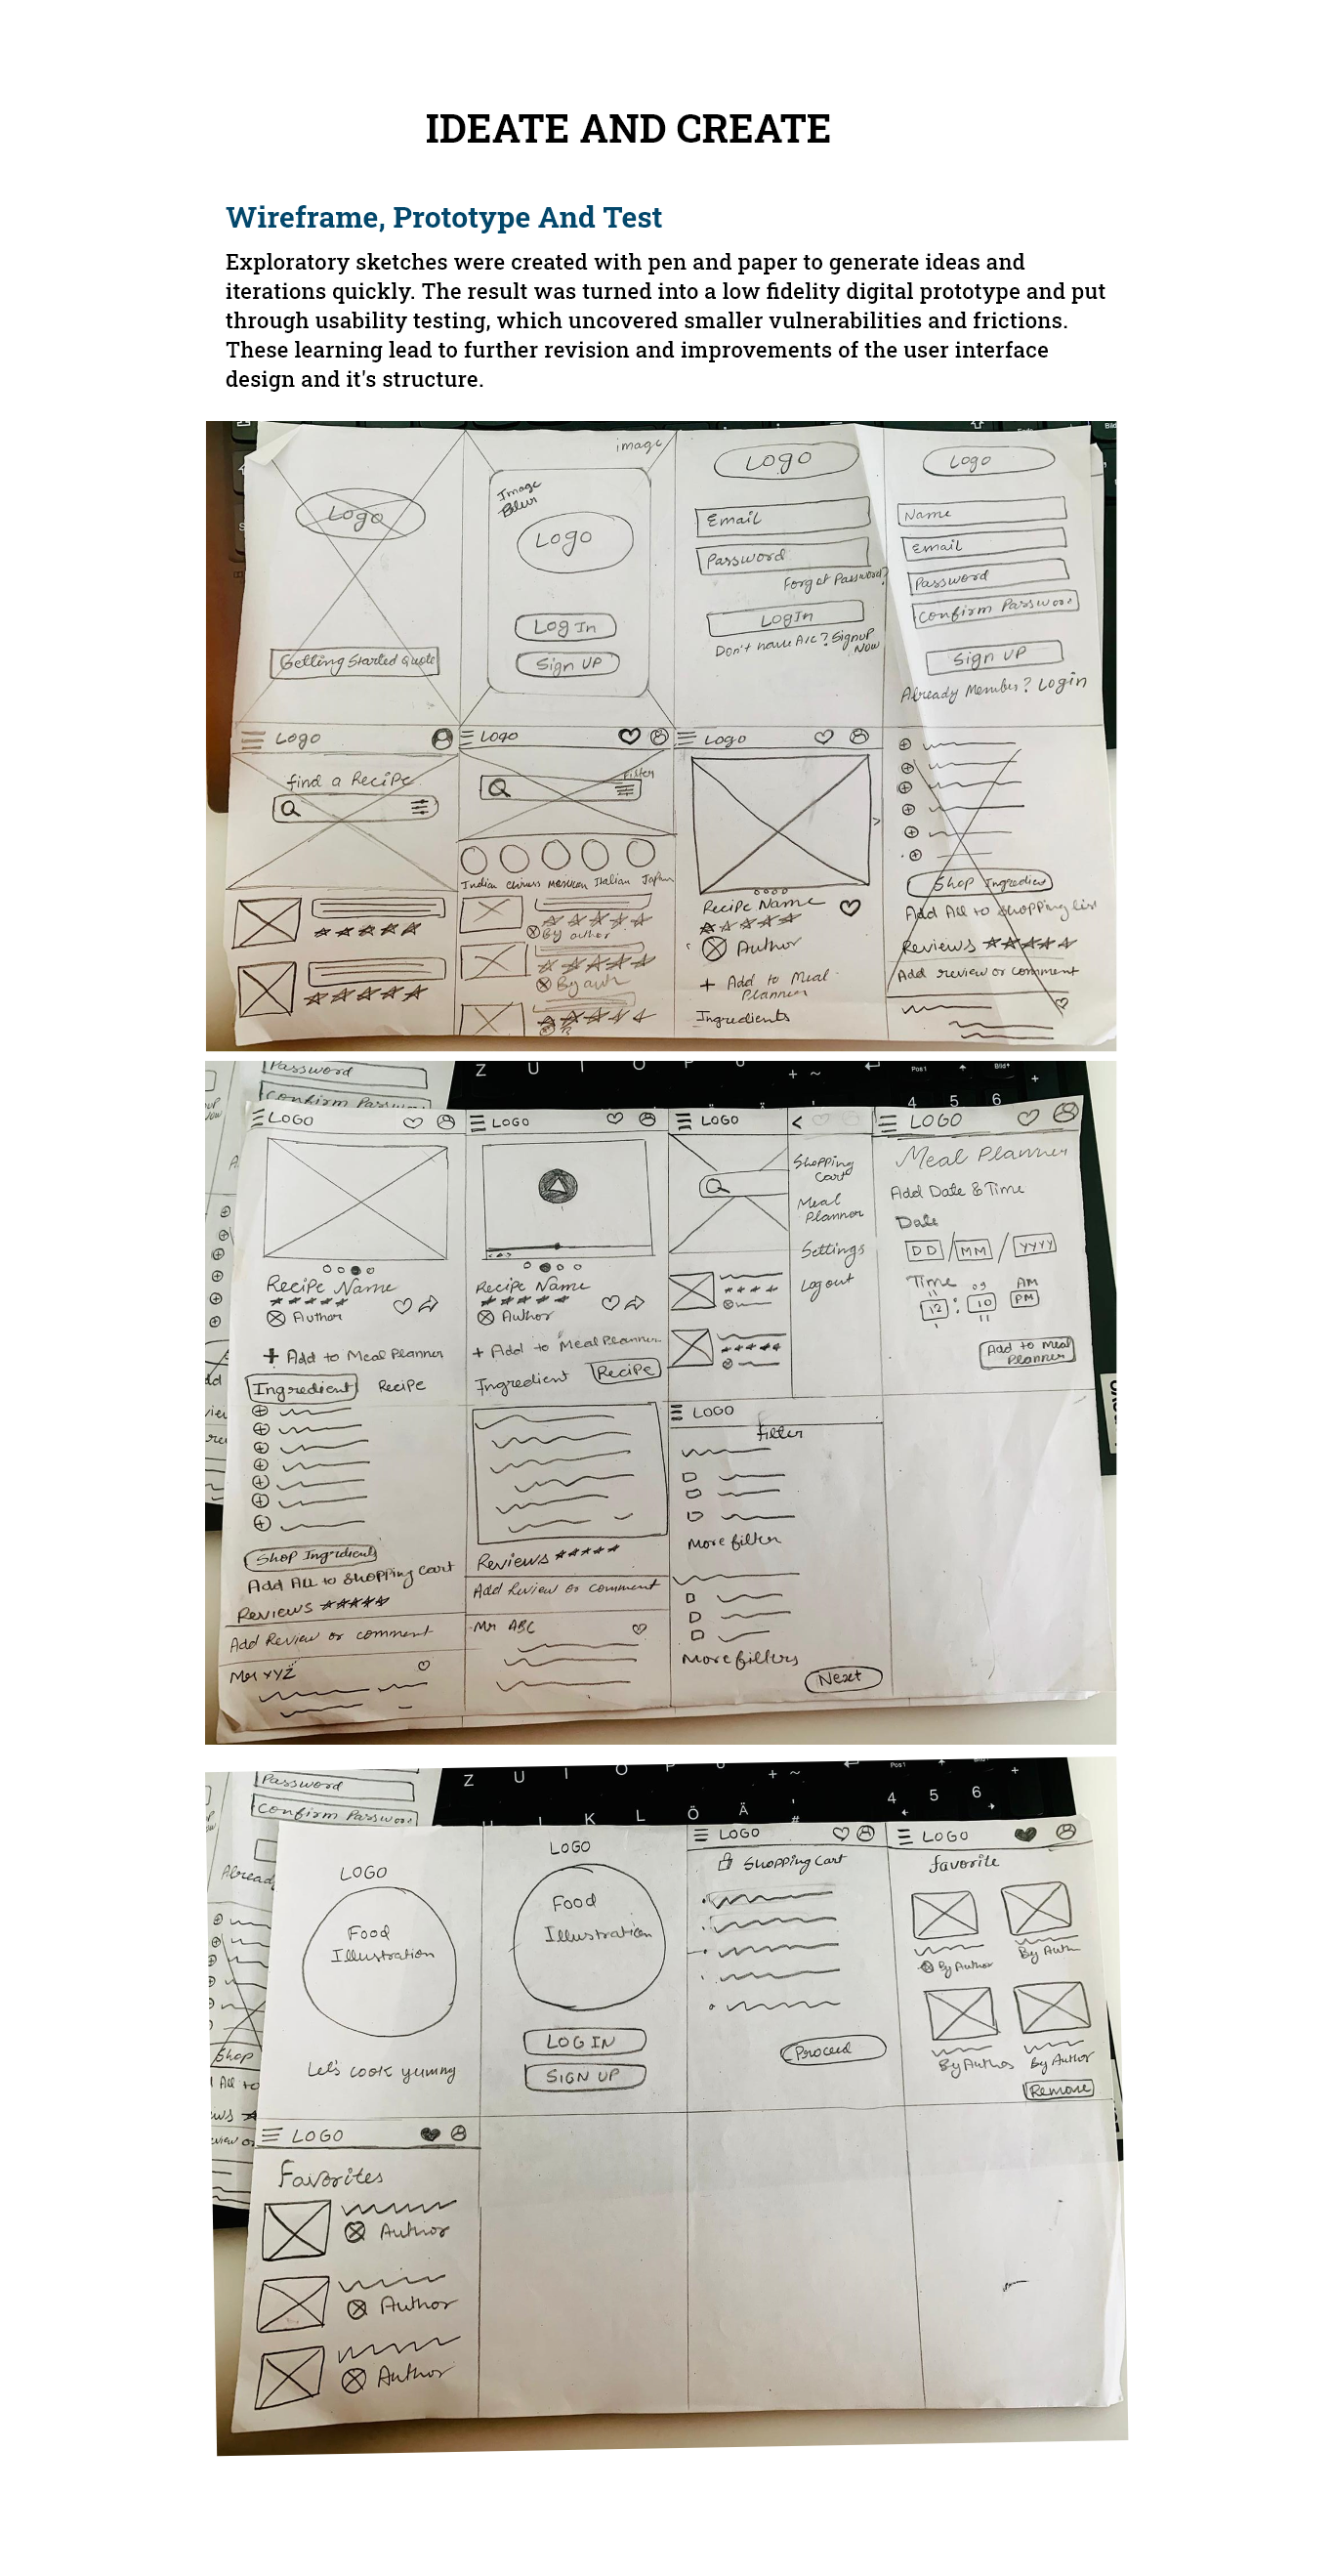 IDEATE AND CREATE
Wireframe, Prototype And Test
Exploratory sketches were created with pen and paper to generate ideas and
iterations quickly. The result was turned into a low fidelity digital prototype and put
through usability testing, which uncovered smaller vulnerabilities and frictions.
These learning lead to further revision and improvements of the user interface
design and it's structure.
Logo
Getting Started Quote
image
Image
Blur
Logo
Log In
Sign UP
Logo
Email
Password
Forgot Password?
LogIn
Don't have A/c? Signup
Now
Logo
Name
Email
Password
Confirm Passwor
Sign UP
Already Member? Login
Logo
find a Recipe
Logo
Filter
Indian
Mexican Italian
By author
By auth
Logo
Recipe Name
Author
+ Add to Meal
Planner
Ingredients
Shop Ingredient
Add All to Shopping list
Reviews
Add review or comment
Password
Confirm Passwor
Z U I O P Ü + ~
Pos1
Bild
4 5 6 +
LOGO
Recipe Name
Author
+ Add to Meal Planner
Ingredient Recipe
Shop Ingredients
Add All to Shopping Cart
Reviews
Add Review or comment
Mr XYZ
LOGO
Recipe Name
Author
+ Add to Meal Planner
Ingredient Recipe
Reviews
Add Review or comment
Mr ABC
LOGO
<
Shopping
Cart
Meal
Planner
Settings
Logout
LOGO
Meal Planner
Add Date & Time
Date
DD / MM / YYYY
Time
11 09 AM
12 : 10 PM
1 11
Add to Meal
Planner
LOGO
filter
More filter
More filters
Next
Password
Confirm Passwor
Already
Shop
All to
Z U I O P Ü + ~
Pos1
4 5 6 +
K L Ö Ä #
LOGO
Food
Illustration
Let's cook yummy
LOGO
Food
Illustration
LOG IN
SIGN UP
LOGO
Shopping Cart
Proceed
LOGO
favorite
By Author
By Auth
By Author
By Author
Remove
LOGO
Favorites
Author
Author
Author